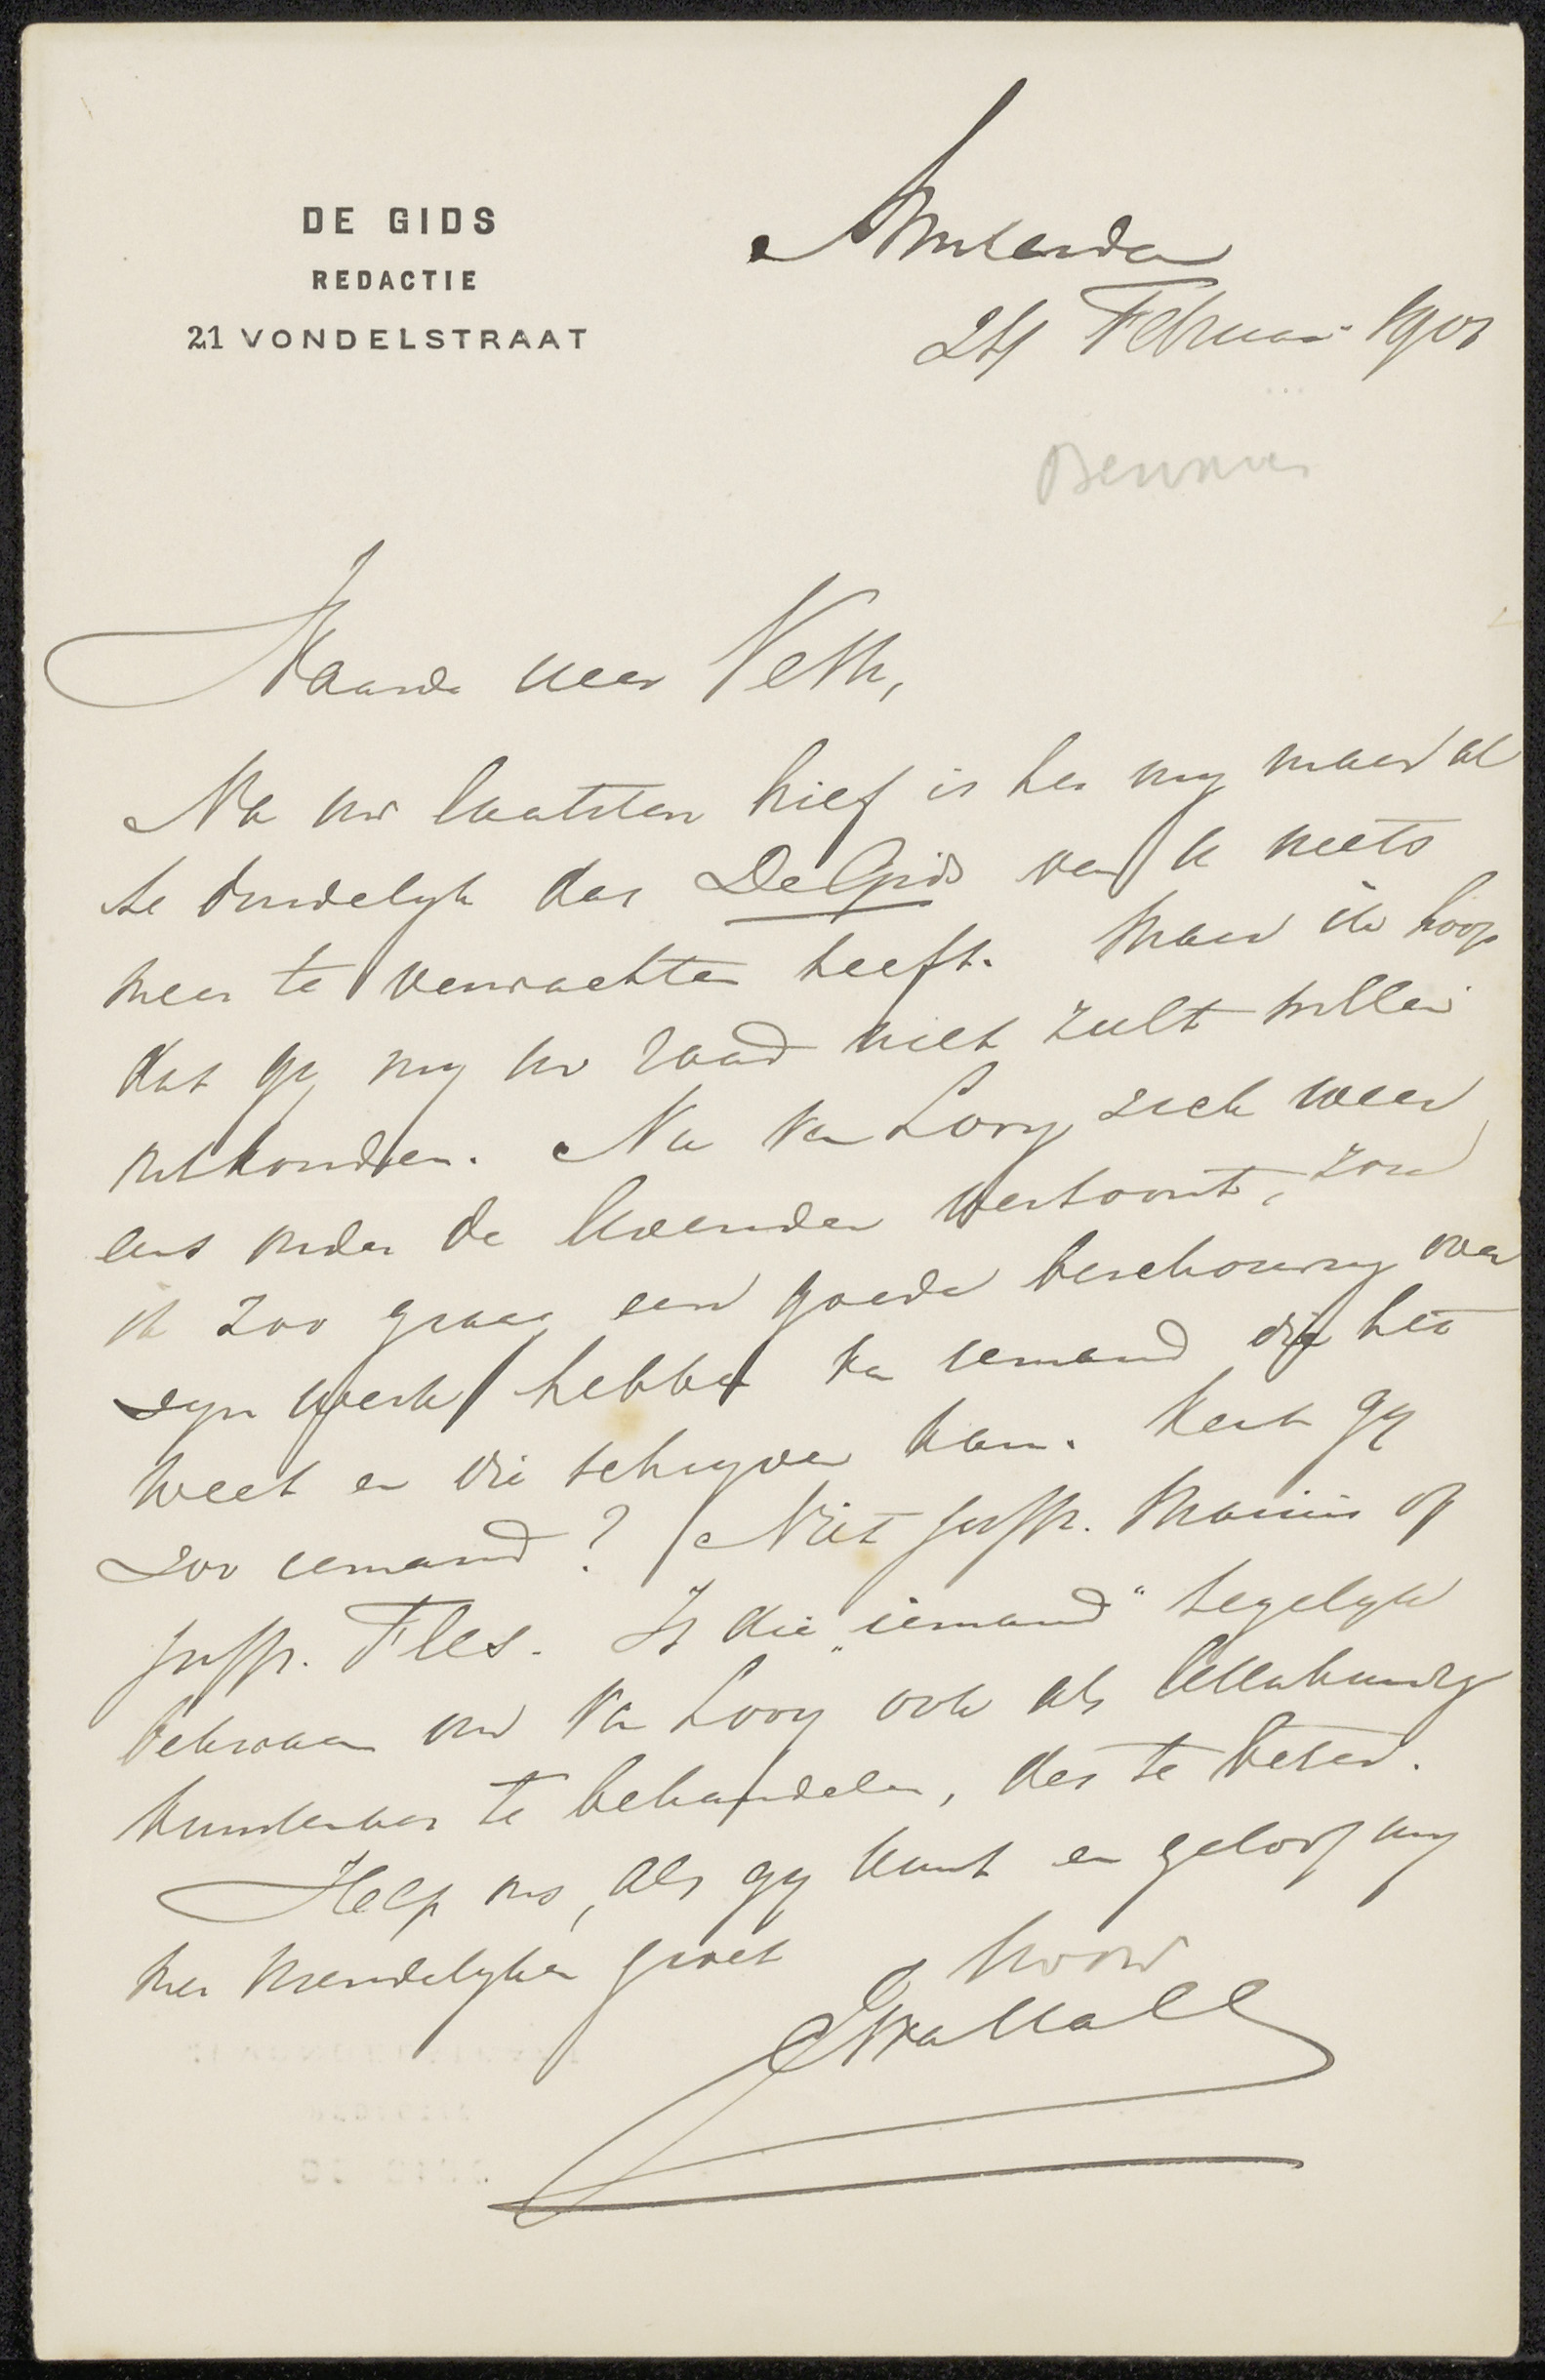 DE GIDS
REDACTIE
21 VONDELSTRAAT
Amsterdam
24 Februari 1901
Waarde heer Veth,
Na uw laatsten brief is het mij maar al
te duidelijk dat De Gids van u niets
meer te verwachten heeft. Maar ik hoop
dat gij mij uw raad niet zult willen
onthouden. Nu Van Looy zich weer
eens onder de levenden vertoont, zou
ik zoo graag een goede beschouwing over
zijn werk hebben van iemand die het
weet en die schrijven kan. Kent gij
zoo iemand? Niet juffr. Marius of
juffr. Fles. Is die „iemand” tegelijk
bekwaam om Van Looy ook als letterkundig
kunstenaar te behandelen, des te beter.
Help ons, als gij kunt en geloof mij
met vriendelijken groet
JN van Hall